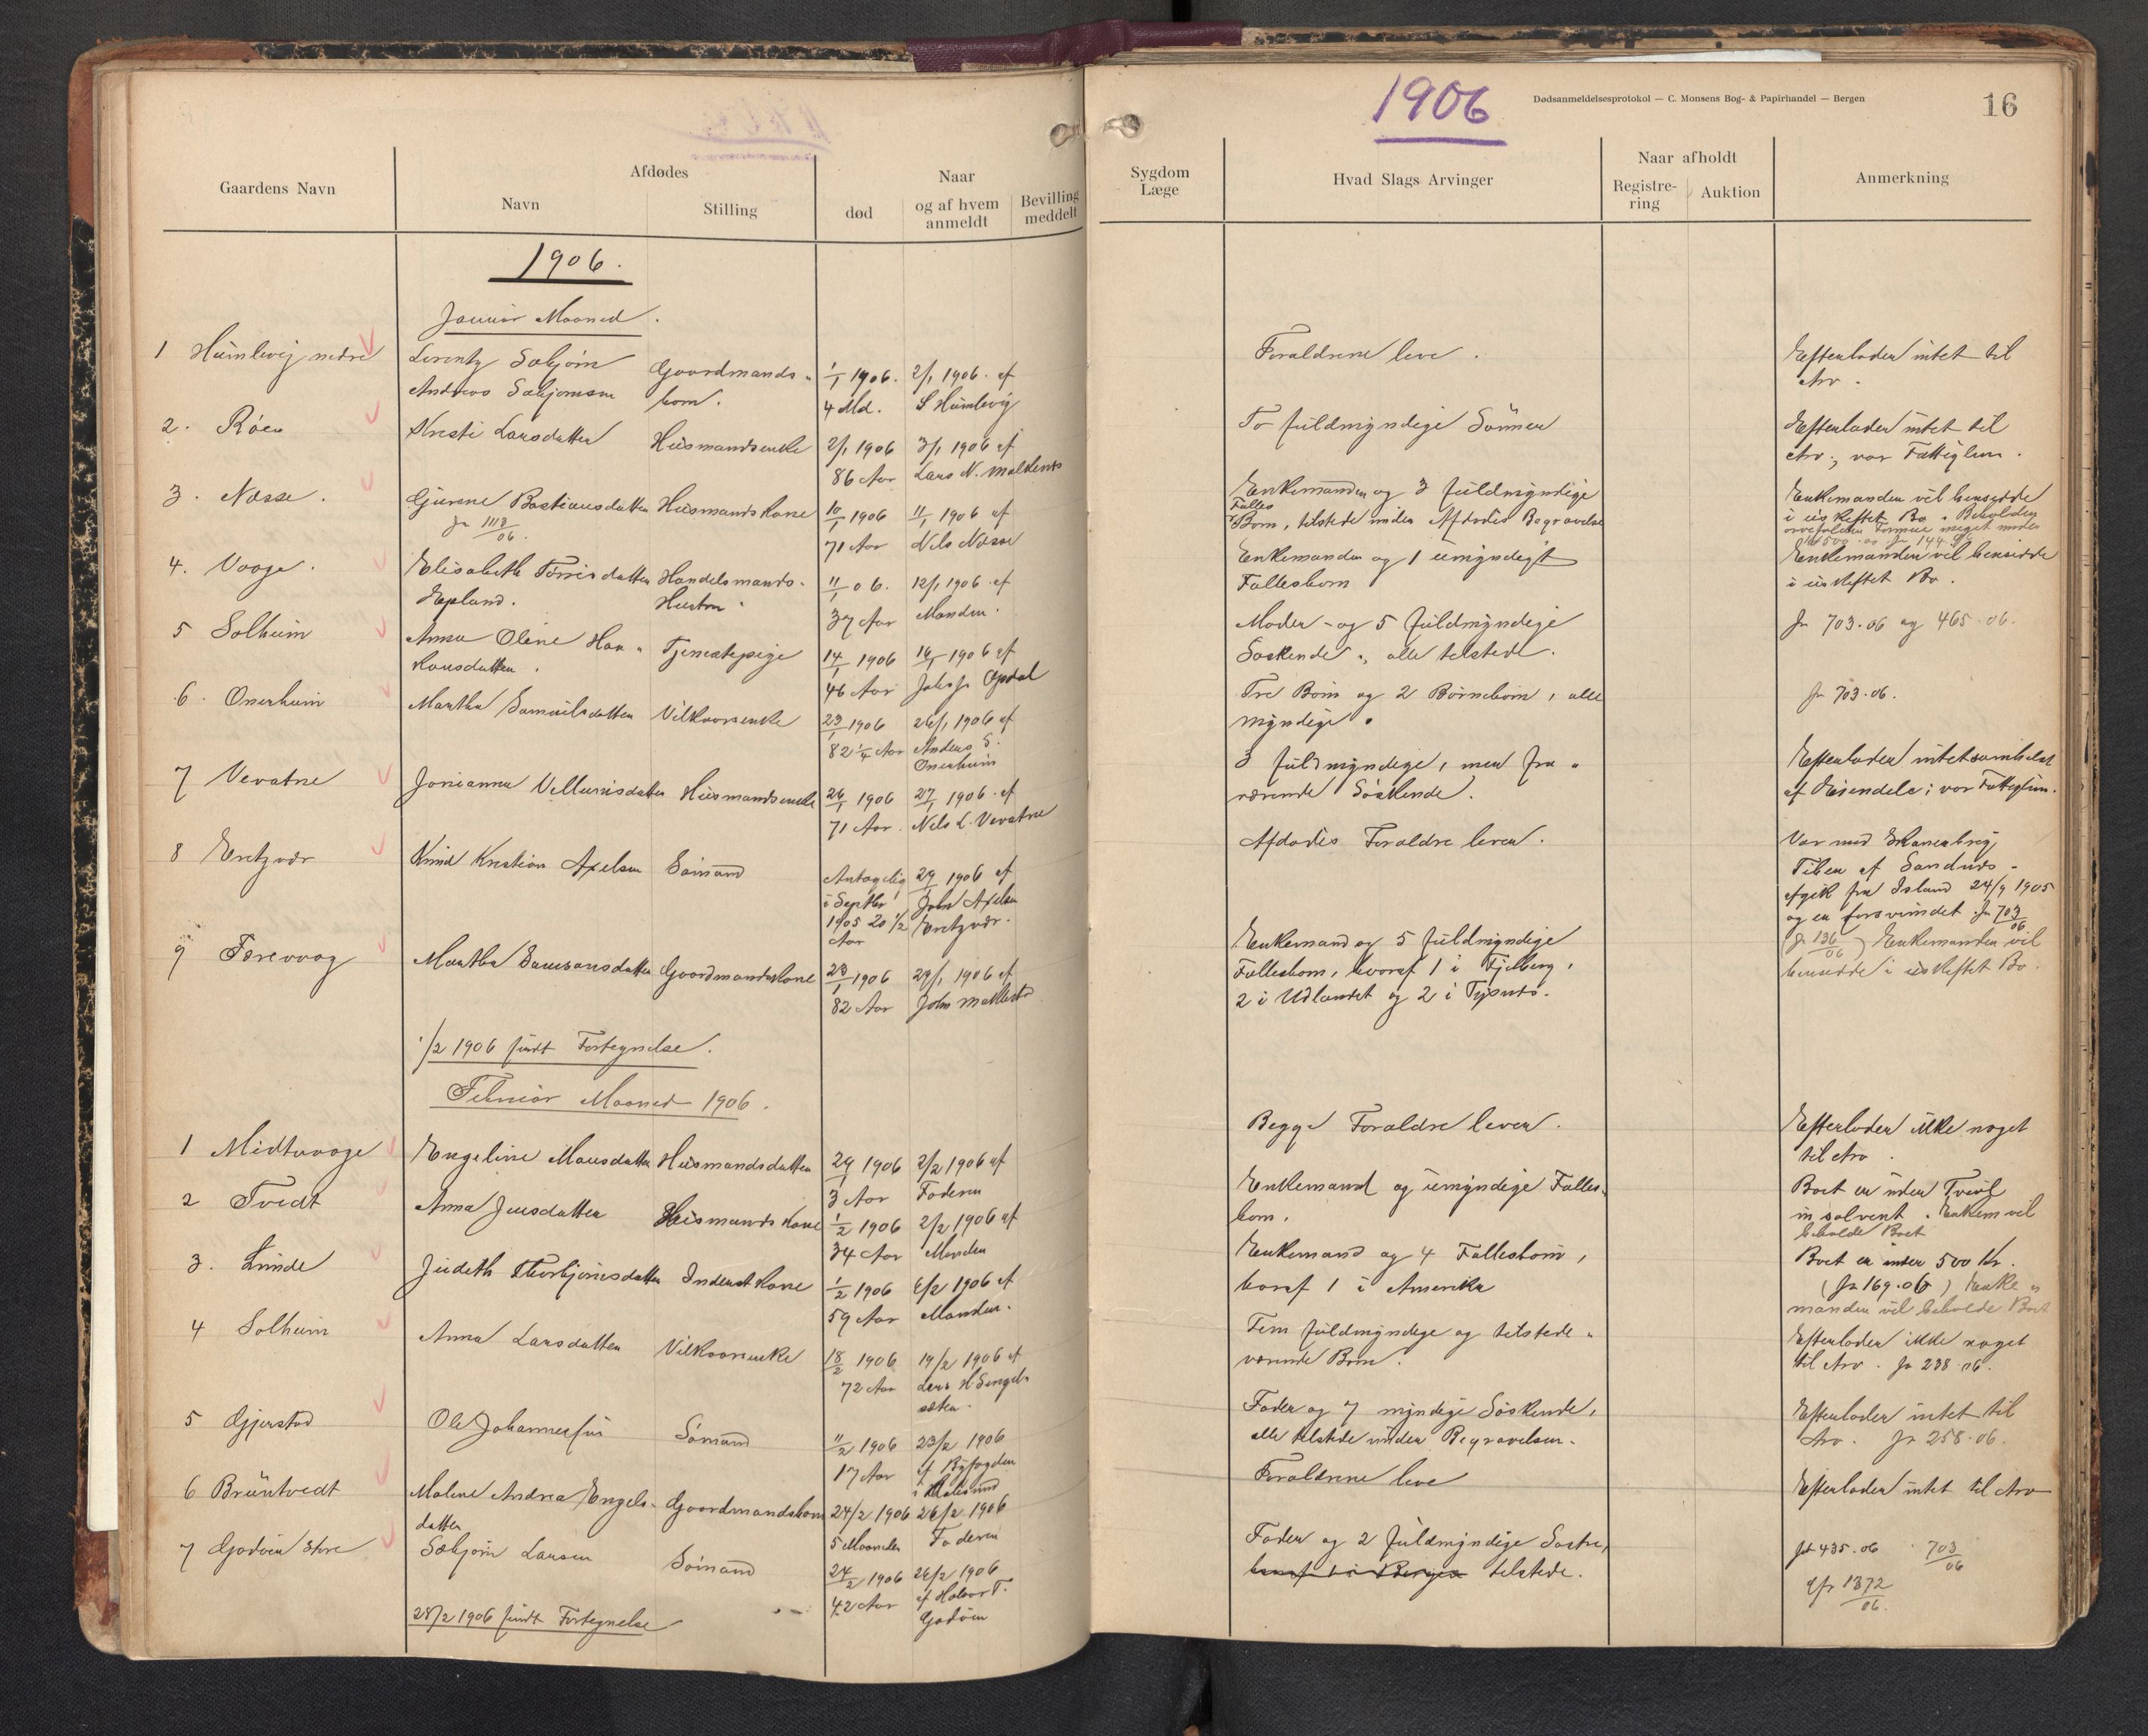 1906
Dødsanmeldelsesprotokol — C. Monsens Bog- & Papirhandel — Bergen
16
Gaardens Navn
Afdødes
Navn
Stilling
Naar
død
og af hvem anmeldt
Bevilling meddelt
Sygdom Læge
Hvad Slags Arvinger
Naar afholdt
Registre-ring
Auktion
Anmerkning
1906.
Januar Maaned.
1 Humlevig nedre Lorentz Sæbjørn Gaardmands- 1/1 1906. 2/1 1906 af Forældrene leve. Efterlader intet til
Andreas Sæbjørnsen barn. 4 Md. S Humlevig Arv.
2. Røen Kristi Larsdatter Husmandsenke 2/1 1906 3/1 1906 af To fuldmyndige Sønner Efterlader intet til
86 Aar Lars N. Arv; var Fattiglem.
3. Næsse. Gjurine Bastiansdatter Husmandskone 10/1 1906 11/1 1906 af Enkemanden og 3 fuldmyndige Enkemanden vil hensidde
Jr 1112/06. 71 Aar Nils Næsse Fælles Børn, tilstede under Afdødes Begravelse i uskiftet Bo.
4. Vaage. Elisabeth Tørrisdatter Handelsmands- 11/1 06. 12/1 1906 af Enkemanden og 1 umyndigt Enkemanden vil hensidde
Epland. Hustru 37 Aar Manden. Fællesbarn i uskiftet Bo.
5 Solheim Anna Oline Haa- Tjenestepige 14/1 1906 16/1 1906 af Moder og 5 fuldmyndige Jr 703.06 og 465.06.
konsdatter. 46 Aar Opdal Søskende, alle tilstede.
6. Onerheim Martha Samuelsdatter Vilkaarsenke 23/1 1906 26/1 1906 af Tre Børn og 2 Børnebørn, alle Jr 703.06.
82 1/4 Aar Anders S. Onerheim myndige.
7 Vevatne Jorianna Villumsdatter Husmandsenke 26/1 1906 27/1 1906 af 3 fuldmyndige, men fra- Efterlader intetsomhelst
71 Aar. Nils L. Vevatne værende Søskende. af Eiendele; var Fattiglem.
8 Knud Kristian Axelsen Sømand Antagelig 29/1 1906 af Afdødes Forældre lever. Var med
i Septbr John Axelsen af Sandnes
1905 20 1/2 Aar afgik fra Island 24/9 1905
og er forsvundet. Jr 703/06
9 Færevaag Martha Gaardmandskone 23/1 1906 29/1 1906 af Enkemand og 5 fuldmyndige (Jr 136/06) Enkemanden vil
82 Aar John Fællesbørn, hvoraf 1 i Fjelberg, hensidde i uskiftet Bo.
2 i Udlandet og 2 i Tysnes.
1/2 1906 sendt Fortegnelse.
Februar Maaned 1906.
1 Midtvaage Engeline Monsdatter Husmandsdatter 29/1 1906 2/2 1906 af Begge Forældre lever. Efterlader ikke noget
3 Aar Faderen til Arv.
2 Tvedt Anna Jensdatter Husmandskone 1/2 1906 2/2 1906 af Enkemand og umyndige Fælles- Boet er uden Tvivl
34 Aar Manden børn. insolvent. Enkem vil
beholde Boet
3. Lunde Judith Thorbjørnsdatter Inderstkone 1/2 1906 6/2 1906 af Enkemand og 4 Fællesbørn, Boet er under 500 Kr.
59 Aar Manden. hvoraf 1 i Amerika (Jr 169.06) Enke-
manden vil beholde Boet
4 Solheim Anna Larsdatter Vilkaarsenke 18/2 1906 19/2 1906 af Fem fuldmyndige og tilstede- Efterlader ikke noget
72 Aar Lars H værende Børn. til Arv. Jr 238.06.
5 Gjerstad Ole Johannessen Sømand 11/2 1906 23/2 1906 Fader og 7 myndige Søskende, Efterlader intet til
17 Aar af Byfogden i Aalesund alle tilstede under Begravelsen. Arv. Jr 258.06.
6 Bruntvedt Malene Andrea Engels- Gaardmandsbarn 24/2 1906 26/2 1906 Forældrene leve Efterlader intet til Arv
datter 5 Maaneder Faderen
7 Godøen store Sæbjørn Larsen Sømand 24/2 1906 26/2 1906 Fader og 2 fuldmyndige Søstre, Jr 435.06 703/06
42 Aar af Halvor T. Godøen hvoraf 1 i Bergen tilstede. Jfr 1372/06.
28/2 1906 sendt Fortegnelse